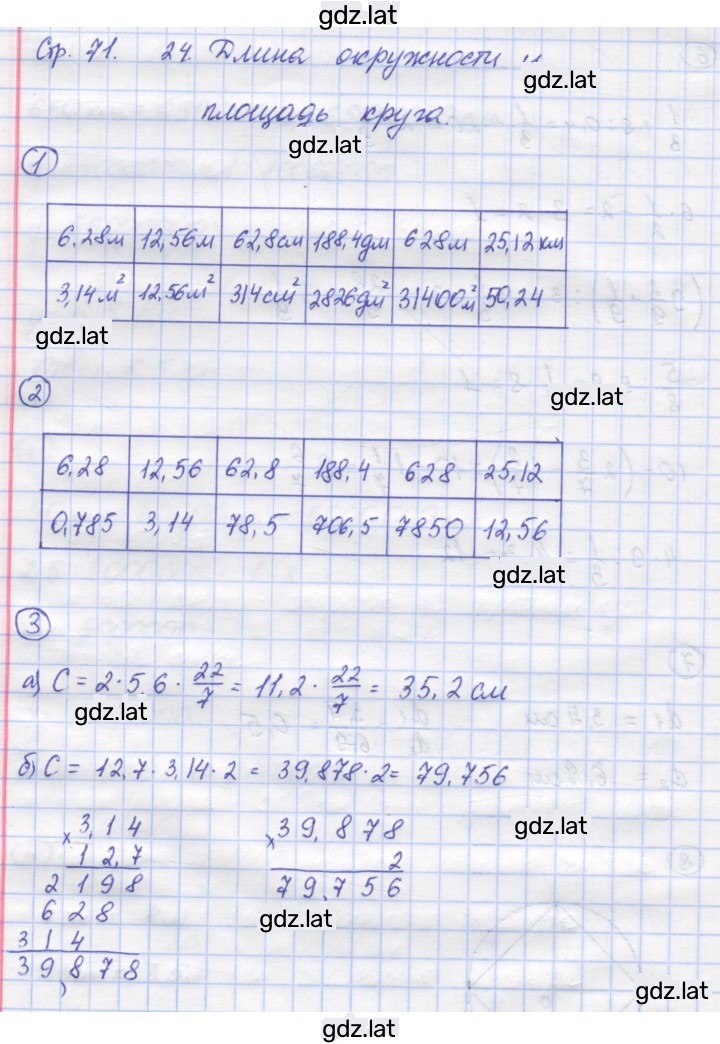 gdz.lat
Стр. 71. 24. Длина окружности и
gdz.lat
площадь круга.
gdz.lat
1
6,28м 12,56м 62,8см 188,4дм 628м 25,12км
3,14м² 12,56м² 314см² 2826дм² 31400м² 50,24
gdz.lat
2
gdz.lat
6,28 12,56 62,8 188,4 628 25,12
0,785 3,14 78,5 706,5 7850 12,56
gdz.lat
3
а) C = 2·5,6 · 22/7 = 11,2 · 22/7 = 35,2 см
gdz.lat
б) C = 12,7 · 3,14 · 2 = 39,878 · 2 = 79,756
gdz.lat
× 3,14
12,7
2198
628
314
39,878
× 39,878
2
79,756
gdz.lat
gdz.lat
gdz.lat